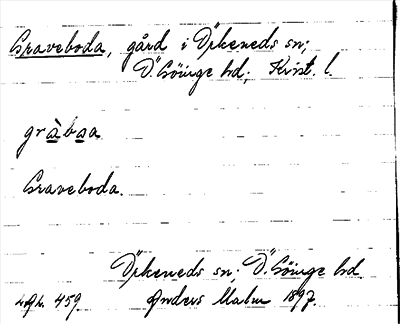 Graveboda, gård i Örkeneds sn;
Ö. Göinge hd; Krist. l.
gràboa
Graveboda.
Örkeneds sn; Ö. Göinge hd.
459. Anders Malm 1897.